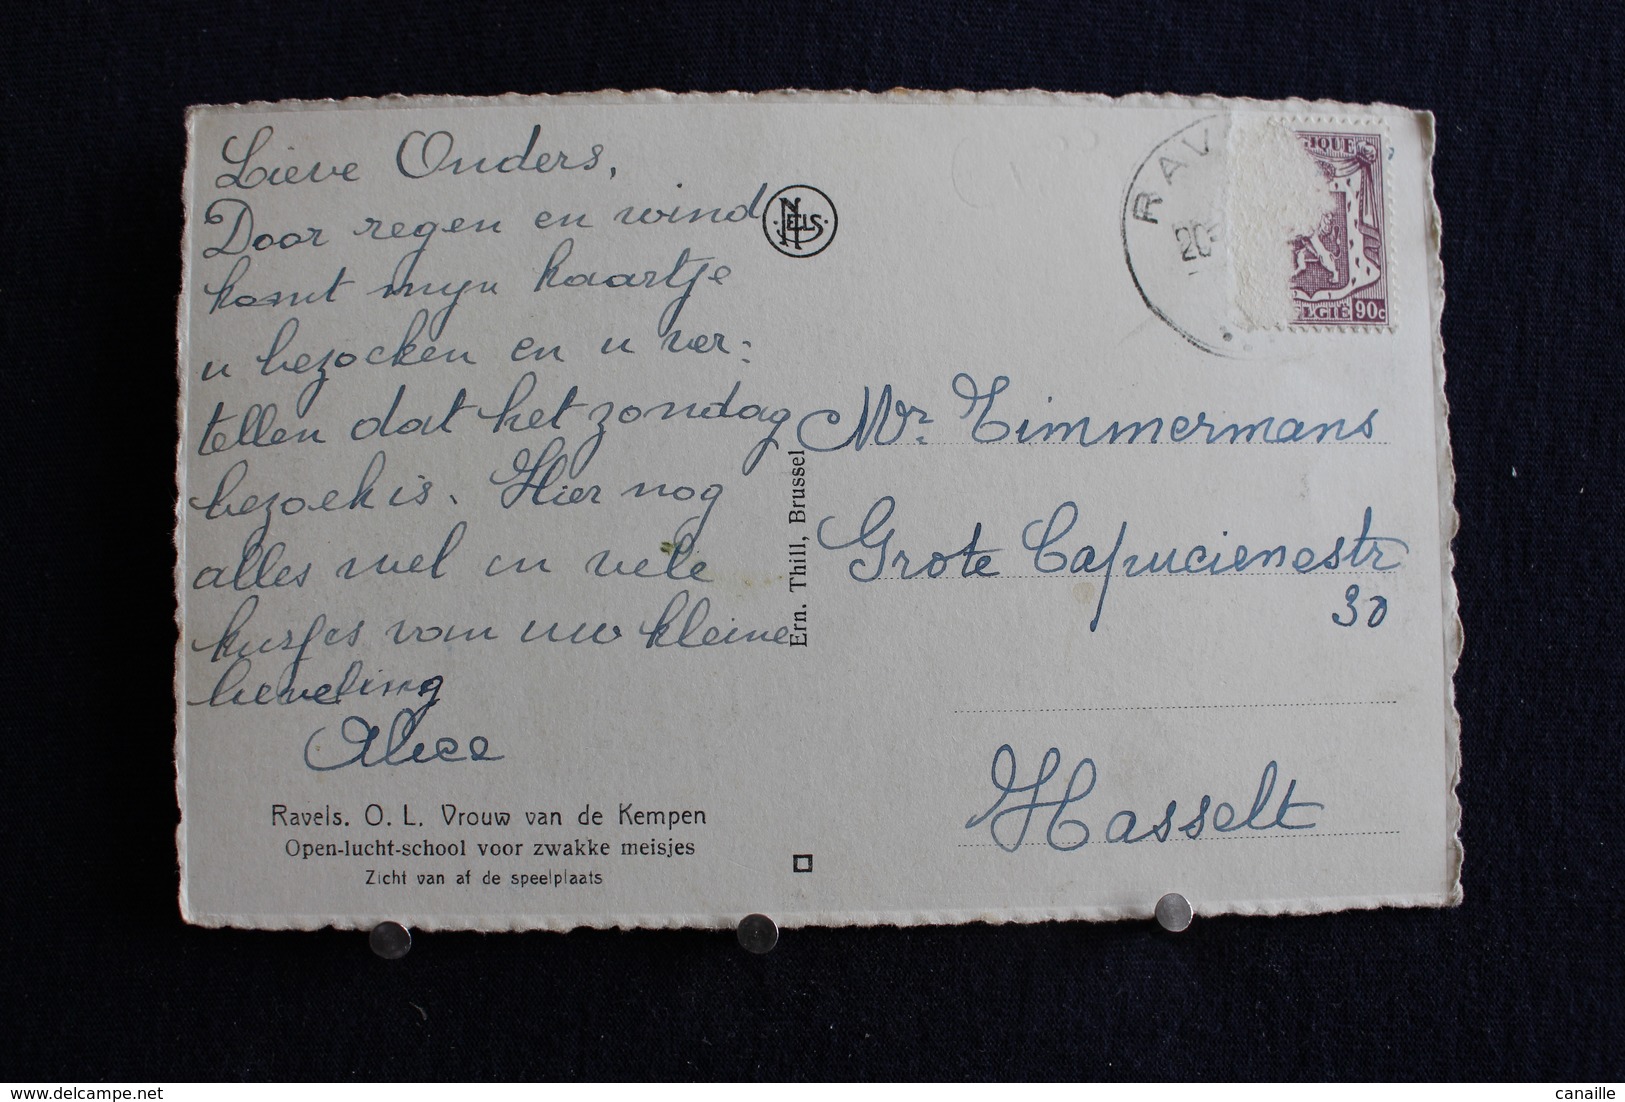 Lieve Ouders,
Door regen en wind
komt mijn kaartje
u bezoeken en u ver-
tellen dat het zondag
bezoek is. Hier nog
alles wel en vele
kusjes van uw kleine
lieveling
Alice
Ravels. O. L. Vrouw van de Kempen
Open-lucht-school voor zwakke meisjes
Zicht van af de speelplaats
NELS
Ern. Thill, Brussel
RAV
20
GIQUE
ELGIË 90c
Mr. Timmermans
Grote Capucienestr
30
Hasselt
delcampe.net
canaille